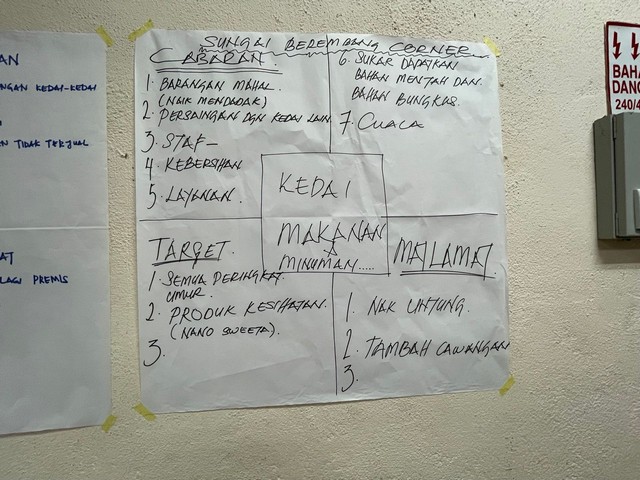 AN
NGAN KEDAI-KEDAI
TIDAK TERJUAL
AT
LAGI PREMIS
SUNGAI BEREMBANG CORNER
CABARAN.
1. BARANGAN MAHAL.
(NAIK MENDADAK)
2. PERSAINGAN DGN KEDAI LAIN
3. STAF-
4. KEBERSIHAN
5. LAYANAN.
6. SUKAR DAPATKAN
BAHAN MENTAH DAN
BAHAN BUNGKUS.
7. CUACA
KEDAI
MAKANAN
&
MINUMAN.....
TARGET.
1. SEMUA PERINGKAT
UMUR.
2. PRODUK KESIHATAN.
(NANO SWEETA).
3.
MATLAMAT
1. NAK UNTUNG.
2. TAMBAH CAWANGAN
3.
BAHA
DANG
240/4